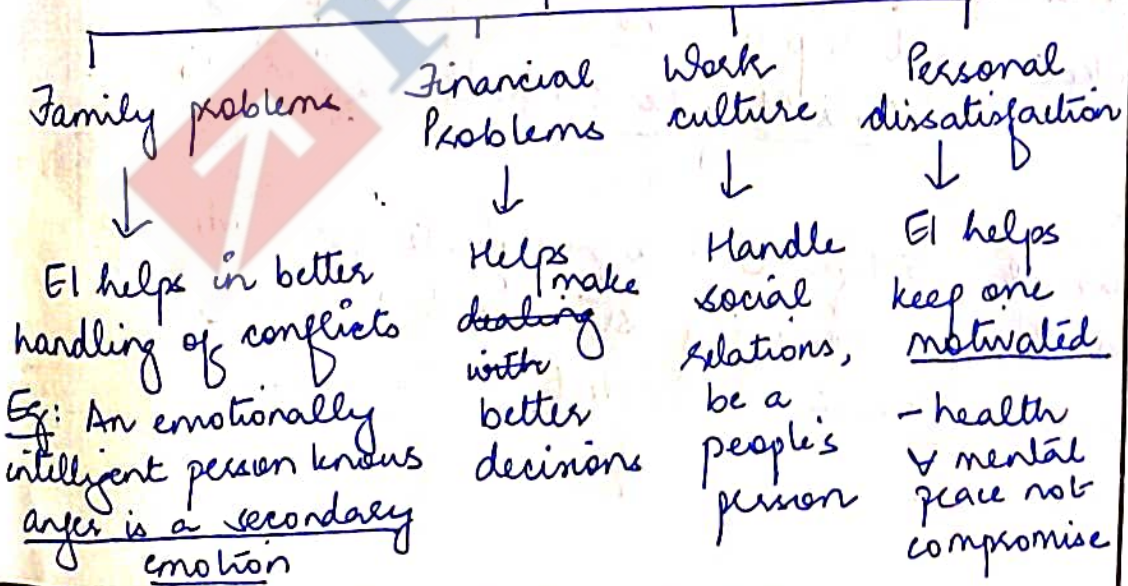 Family problems
EI helps in better
handling of conflicts
Eg: An emotionally
intelligent person knows
anger is a secondary
emotion
Financial
Problems
Helps make
dealing
with
better
decisions
Work
culture
Handle
social
relations,
be a
people's
person
Personal
dissatisfaction
EI helps
keep one
motivated
- health
& mental
peace not
compromise